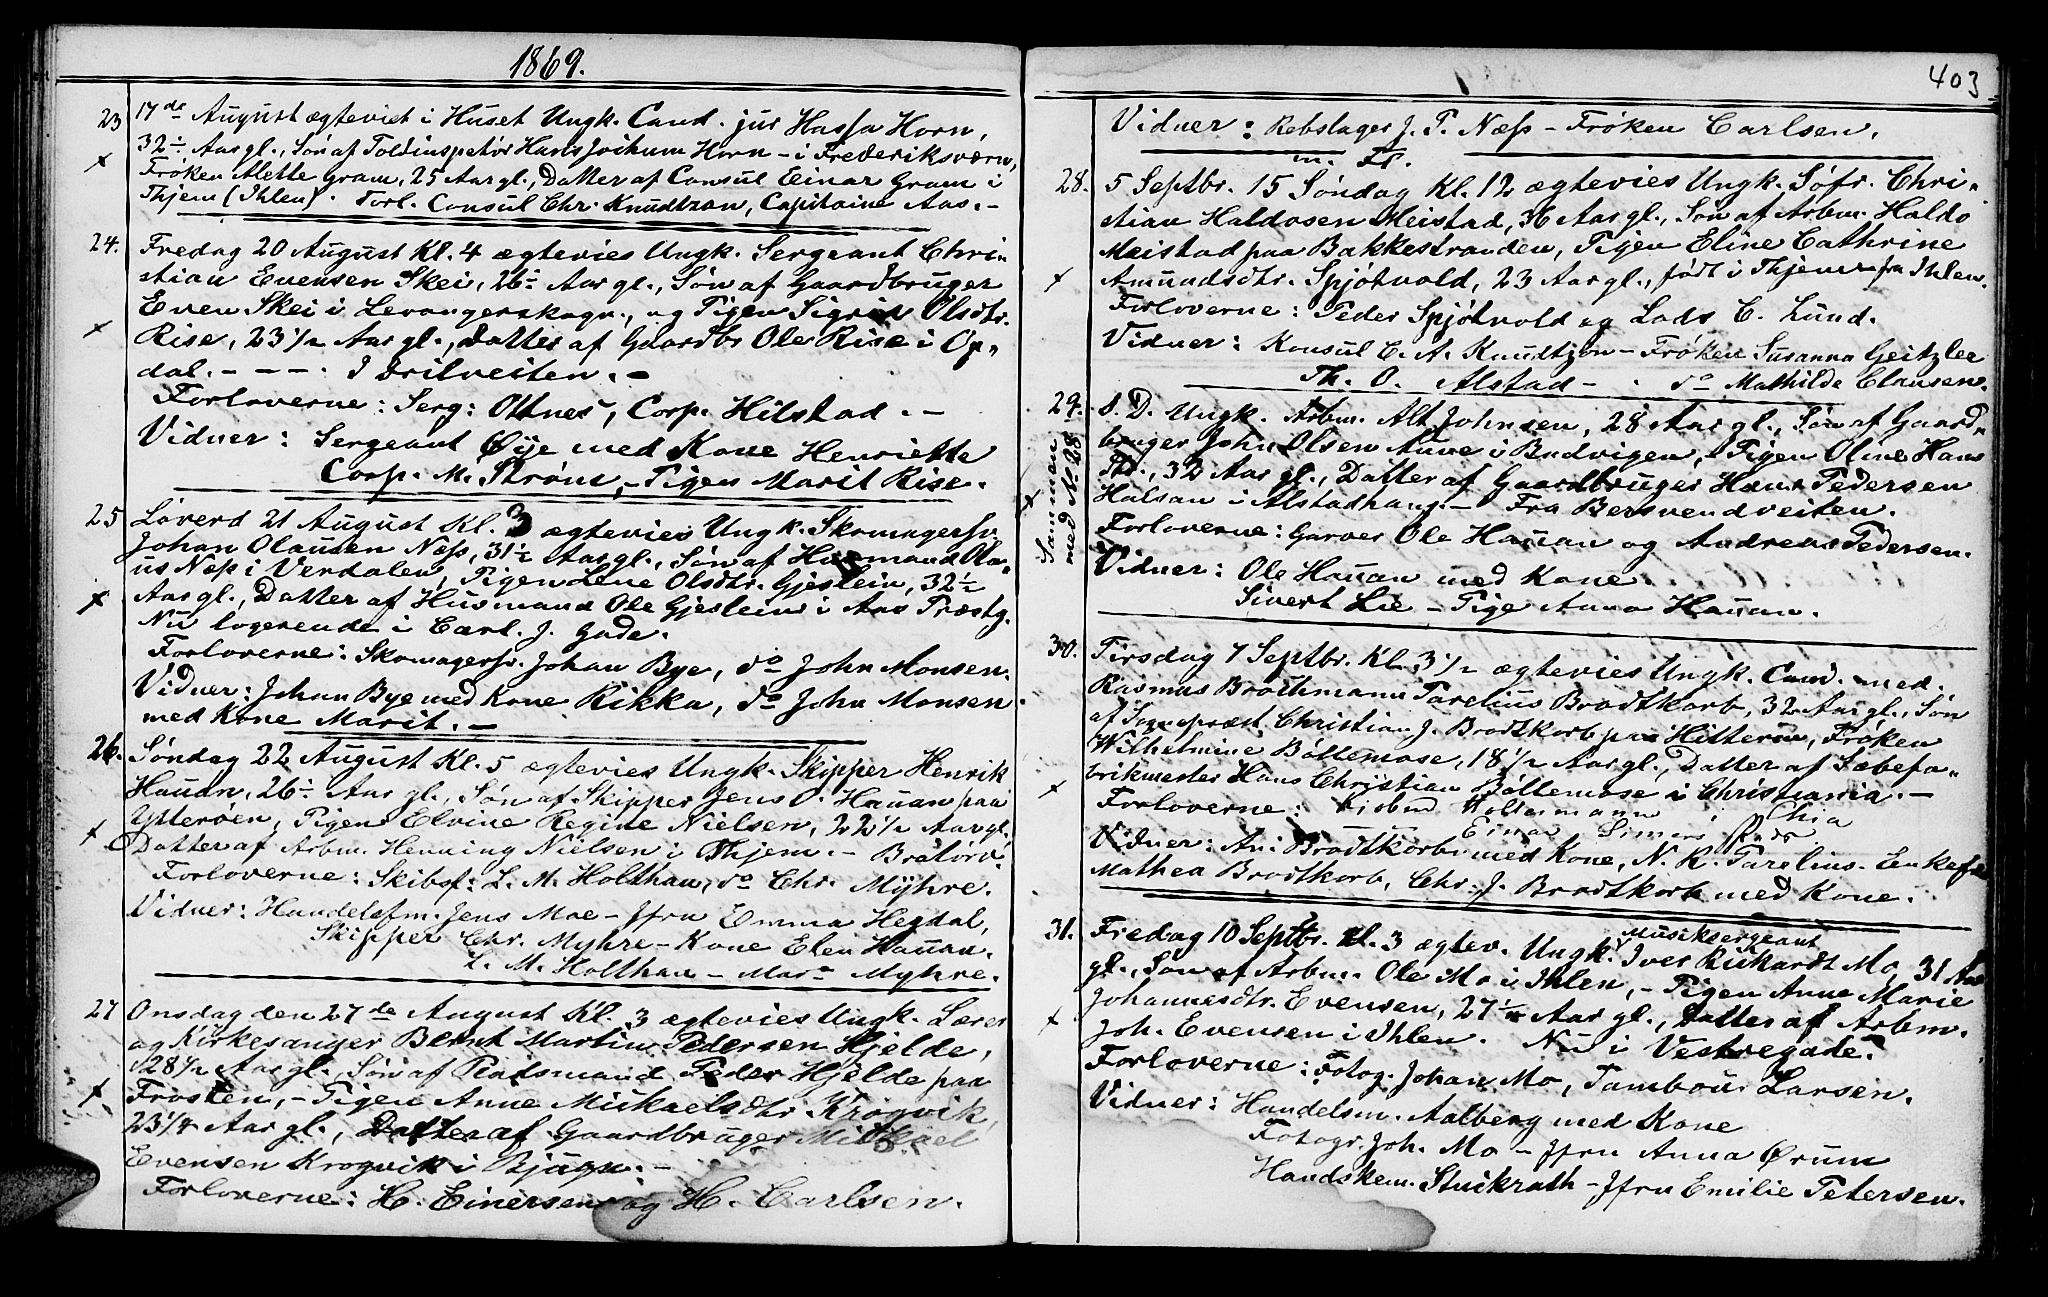 1869.
23 17de August ægteviet i Huset Ungk. Cand. jur Hassa Horn,
32½ Aar gl., Søn af Toldinspektør Hans Jochum Horn - i Frederiksværn,
Frøken Alette Gram, 25 Aar gl., Datter af Consul Einar Gram i
Thjem (Ihlen). Forl. Consul Chr. Knudtzon, Capitaine Aas. -
24. Fredag 20 August Kl. 4 ægtevies Ungk. Sergeant Chri-
stian Evensen Skei, 26½ Aar gl., Søn af Gaardbruger
Even Skei i Levangerskogn, og Pigen Sigrid Olsdtr.
Rise, 23 1/2 Aar gl., Datter af Gaardbr Ole Rise i Op-
dal. - - - . I Drilveiten. -
Forloverne: Serg: Ottnes, Corp. Hilstad. -
Vidner: Sergeant Øye med Kone Henriette
Corp. M. Strøm, - Pigen Marit Rise.
25 Løverd 21 August Kl. 3 ægtevies Ungk. Skomagersv.
Johan Olausen Næss, 31½ Aar gl., Søn af Husmand Ola-
us Næss i Verdalen, Pigen Lene Olsdtr. Gjeslein, 32½
Aar gl., Datter af Husmand Ole Gjeslein i Aas Præstg.
Nu logerende i Carl. J. Gade.
Forloverne: Skomagersv. Johan Bye, do John Monsen.
Vidner: Johan Bye med Kone Rikka, do John Monsen
med Kone Marit. -
26. Søndag 22 August Kl. 5 ægtevies Ungk. Skipper Henrik
Hauan, 26½ Aar gl., Søn af Skipper Jens O. Hauan paa
Ytterøen, Pigen Elvine Regine Nielsen, 22 1/2 Aar gl.
Datter af Arbm. Henning Nielsen i Thjem. - Bratørv.
Forloverne: Skibsf: L. M. Holthan, do Chr. Myhre.
Vidner: Handelsfm. Jens Moe - Jfru Emma Hegdal,
Skipper Chr. Myhre - Kone Elen Hauan.
L. M. Holthan - Mar Myhre.
27 Onsdag den 27de August Kl. 3 ægtevies Ungk. Lærer
og Kirkesanger Bernt Martin Pedersen Hjelde,
28 1/2 Aar gl., Søn af Peder Hjelde paa
Frosten, - Pigen Anne Mickaelsdtr. Krogvik,
23 1/4 Aar gl., Datter af Gaardbruger Mickael
Evensen Krogvik i Bjugn. -
Forloverne: H. Einersen og H. Carlsen.
403
Vidner: Rebslager J. P. Næss - Frøken Carlsen.
m. Fl.
28. 5 Septbr. 15 Søndag Kl. 12 ægtevies Ungk. Søfr. Chri-
stian Haldosen Meistad, 36 Aar gl., Søn af Arbm. Haldo
Meistad paa Bakkestranden, Pigen Eline Cathrine
Amundsdtr. Spjøtvold, 23 Aar gl., født i Thjem fra Ihlen.
Forloverne: Peder Spjøtvold og Lads C. Lund.
Vidner: Konsul C. A. Knudtzon - Frøken Susanna Geitzler
Th. O. Alstad - . do Mathilde Clausen.
29. S. D. Ungk. Arbm. Alt Johnsen, 28 Aar gl., Søn af Gaard-
bruger John Olsen Aune i Budvigen, Pigen Oline Hans
Ptr., 32 Aar gl., Datter af Gaardbruger Hans Pedersen
Halsan i Alstadhaug. - Fra Bersvendveiten.
Forloverne: Garver Ole Hauan og Andreas Pedersen.
Vidner: Ole Hauan med Kone.
Sivert Lie - Pige Anna Hauan.
Sammen
med No 28
30. Tirsdag 7 Septbr. Kl. 3 1/2 ægtevies Ungk. Cand. med.
Rasmus Brochmann Parelius Brodtkorb, 32 Aar gl., Søn
af Sognepræst Christian J. Brodtkorb paa Hitterøen, Frøken
Wilhelmine Bøllemose, 18 1/2 Aar gl., Datter af Sæbefa-
brikmester Hans Christian Bøllemose i Christiania. -
Forloverne: Woldermann i Chia
Einar Simers
Vidner: An: Brodtkorb med Kone, N. R. Parelius. Enkefr
Mathea Brodtkorb, Chr. J. Brodtkorb med Kone.
31. Fredag 10 Septbr. Kl. 3 ægtev. Ungk. Musiksergeant Iver Rickardt Mo, 31 Aar
gl., Søn af Arbm. Ole Mo i Ihlen, - Pigen Anne Marie
Johannesdtr. Evensen, 27½ Aar gl., Datter af Arbm.
Joh. Evensen i Ihlen. Nu i Vestregade.
Forloverne: Fotog. Johan Mo, Tambour Larsen.
Vidner: Handelsm. Aalberg med Kone
Fotogr. Joh. Mo - Jfru Anna Ørum
Handskem. Stuckrath - Jfru Emilie Petersen.